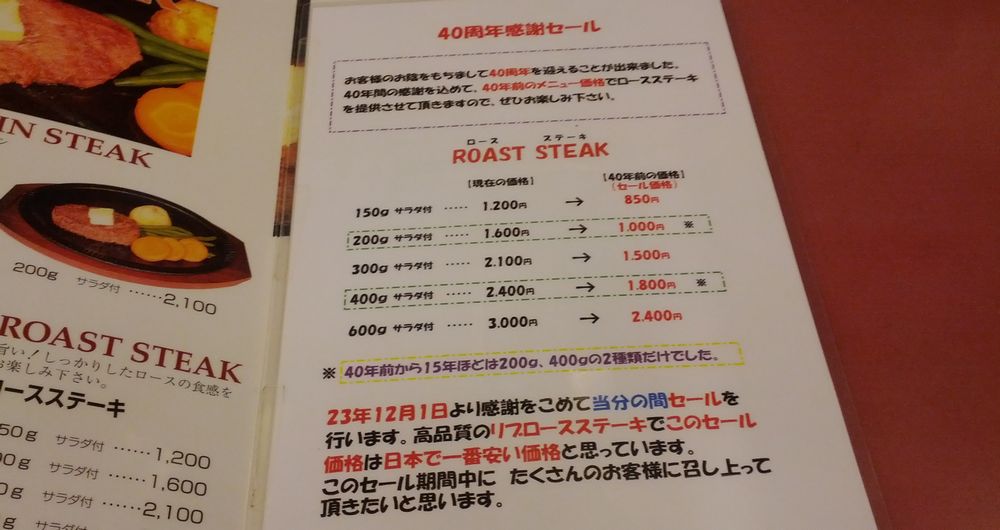 IN STEAK
200g サラダ付 ……2,100
ROAST STEAK
旨い！しっかりしたロースの食感を
お楽しみ下さい。
ロースステーキ
50g サラダ付 ……1,200
00g サラダ付 ……1,600
0g サラダ付 ……2,100
g サラダ付
40周年感謝セール
お客様のお陰をもちまして40周年を迎えることが出来ました。
40年間の感謝を込めて、40年前のメニュー価格でロースステーキ
を提供させて頂きますので、ぜひお楽しみ下さい。
ロース ステーキ
ROAST STEAK
【現在の価格】 【40年前の価格】
(セール価格)
150g サラダ付 ‥‥‥ 1.200円 → 850円
200g サラダ付 ‥‥‥ 1.600円 → 1.000円 ※
300g サラダ付 ‥‥‥ 2.100円 → 1.500円
400g サラダ付 ‥‥‥ 2.400円 → 1.800円 ※
600g サラダ付 ‥‥‥ 3.000円 → 2.400円
※ 40年前から15年ほどは200g、400gの2種類だけでした。
23年12月1日より感謝をこめて当分の間セールを
行います。高品質のリブロースステーキでこのセール
価格は日本で一番安い価格と思っています。
このセール期間中に たくさんのお客様に召し上って
頂きたいと思います。